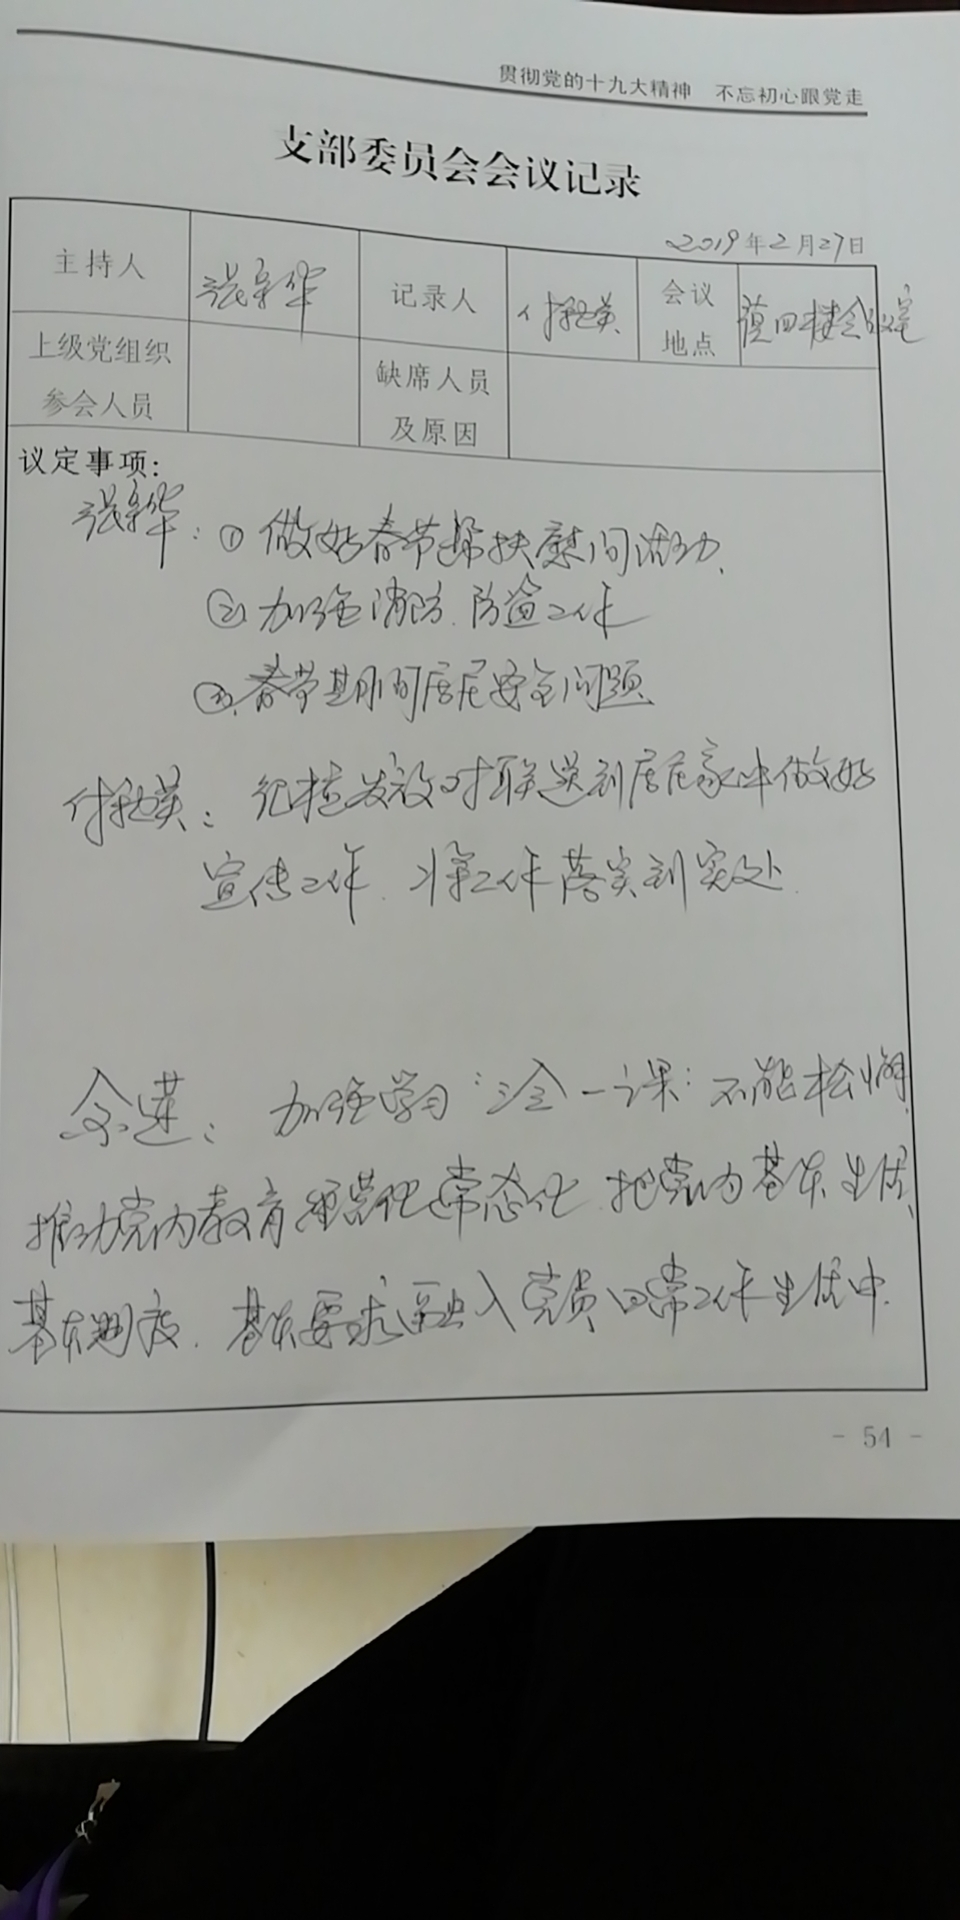 贯彻党的十九大精神 不忘初心跟党走
支部委员会会议记录
2019年2月27日
主持人 张新华 记录人 付秋英 会议地点 四楼会议室
上级党组织参会人员 缺席人员及原因
议定事项:
张新华:①做好春节帮扶慰问活动.
②加强消防.防盗工作
③.春节期间居民安全问题
付秋英:发放对联送到居民家中做好
宣传工作.将工作落实到实处.
加强学习“三会一课”不能松懈
推动党内教育规范化常态化.把党内基本生活、
基本制度.基本要求融入党员日常工作生活中.
- 54 -